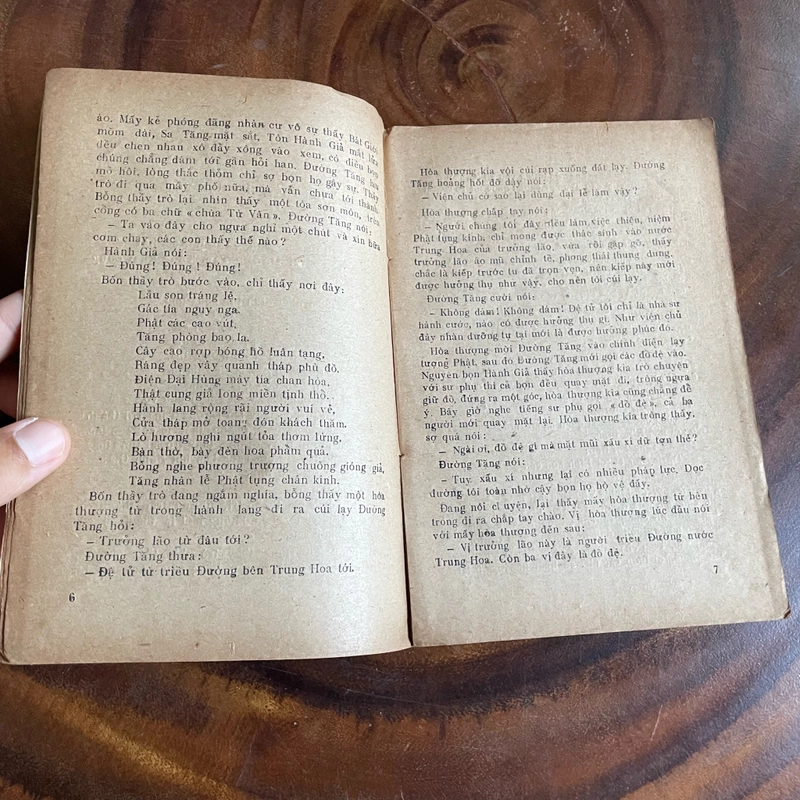 áo. Mấy kẻ phóng đãng nhân cư vô sự thấy Bát Giới
mõm dài, Sa Tăng mặt sát, Tôn Hành Giả mắt
đều chen nhau xô đẩy xông vào xem, có điều
chúng chẳng dám tới gần hỏi han. Đường Tăng
mồ hôi, lòng thắc thỏm chỉ sợ bọn họ gây sự. Thầy
trò đi qua mấy phố nữa, mà vẫn chưa tới thành.
Bỗng thầy trò lại nhìn thấy một tòa sơn môn, trên
cổng có ba chữ «chùa Từ Vân». Đường Tăng nói:
— Ta vào đây cho ngựa nghỉ một chút và xin bữa
cơm chay, các con thấy thế nào?
Hành Giả nói:
— Đúng! Đúng! Đúng!
Bốn thầy trò bước vào, chỉ thấy nơi đây:
Lầu son tráng lệ,
Gác tía nguy nga.
Phật các cao vút,
Tăng phòng bao la.
Cây cao rợp bóng hồ luân tạng,
Ráng đẹp vây quanh tháp phù đồ.
Điện Đại Hùng mây tía chan hòa,
Thật cung giả long miễn tịnh thồ.
Hành lang rộng rãi người vui vẻ,
Cửa tháp mở toang đón khách thăm.
Lò hương nghi ngút tỏa thơm lừng,
Bàn thờ, bày đèn hoa phẩm quả.
Bỗng nghe phương trượng chuông gióng giả,
Tăng nhân lễ Phật tụng chân kinh.
Bốn thầy trò đang ngắm nghía, bỗng thấy một hòa
thượng từ trong hành lang đi ra cúi lạy Đường
Tăng hỏi:
— Trưởng lão từ đâu tới?
Đường Tăng thưa:
— Đệ tử từ triều Đường bên Trung Hoa tới.
6
Hòa thượng kia vội cúi rạp xuống đất lạy. Đường
Tăng hoảng hốt đỡ dậy nói:
— Viện chủ cớ sao lại dùng đại lễ làm vậy?
Hòa thượng chắp tay nói:
— Người chung tôi đây đều làm việc thiện, niệm
Phật tụng kinh, chỉ mong được thác sinh vào nước
Trung Hoa của trưởng lão, vừa rồi gặp gỡ, thấy
trưởng lão áo mũ chỉnh tề, phong thái thung dung,
chắc là kiếp trước tu đã trọn vẹn, nên kiếp này mới
được hưởng thụ như vậy, cho nên tôi cúi lạy.
Đường Tăng cười nói:
— Không dám! Không dám! Đệ tử tôi chỉ là nhà sư
hành cước, nào có được hưởng thụ gì. Như viện chủ
đây nhàn dưỡng tự tại mới là được hưởng phúc đó.
Hòa thượng mời Đường Tăng vào chính điện lạy
tượng Phật, sau đó Đường Tăng mới gọi các đồ đệ vào.
Nguyên bọn Hành Giả thấy hòa thượng kia trò chuyện
với sư phụ thì cả bọn đều quay mặt đi, trông ngựa
giữ đồ, đứng ra một góc, hòa thượng kia cũng chẳng để
ý. Bây giờ nghe tiếng sư phụ gọi «đồ đệ», cả ba
người mới quay mặt lại. Hòa thượng kia trông thấy,
sợ quá nói:
— Ngài ơi, đồ đệ gì mà mặt mũi xấu xí dữ tợn thế?
Đường Tăng nói:
— Tuy xấu xí nhưng lại có nhiều pháp lực. Dọc
đường tôi toàn nhờ cậy bọn họ hộ vệ đấy.
Đang nói chuyện, lại thấy mấy hòa thượng từ bên
trong đi ra chắp tay chào. Vị hòa thượng lúc đầu nói
với mấy hòa thượng đến sau:
— Vị trưởng lão này là người triều Đường nước
Trung Hoa. Còn ba vị đây là đồ đệ.
7